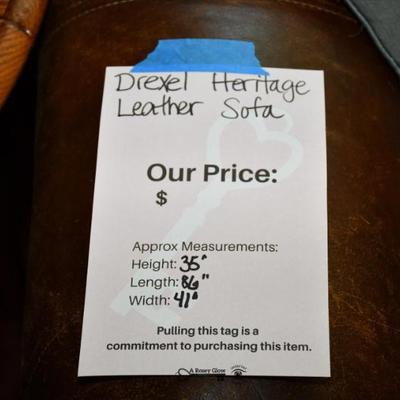 Drexel Heritage
Leather Sofa
Our Price:
$
Approx Measurements:
Height: 35"
Length: 86"
Width: 41"
Pulling this tag is a
commitment to purchasing this item.
A Rosey Glow